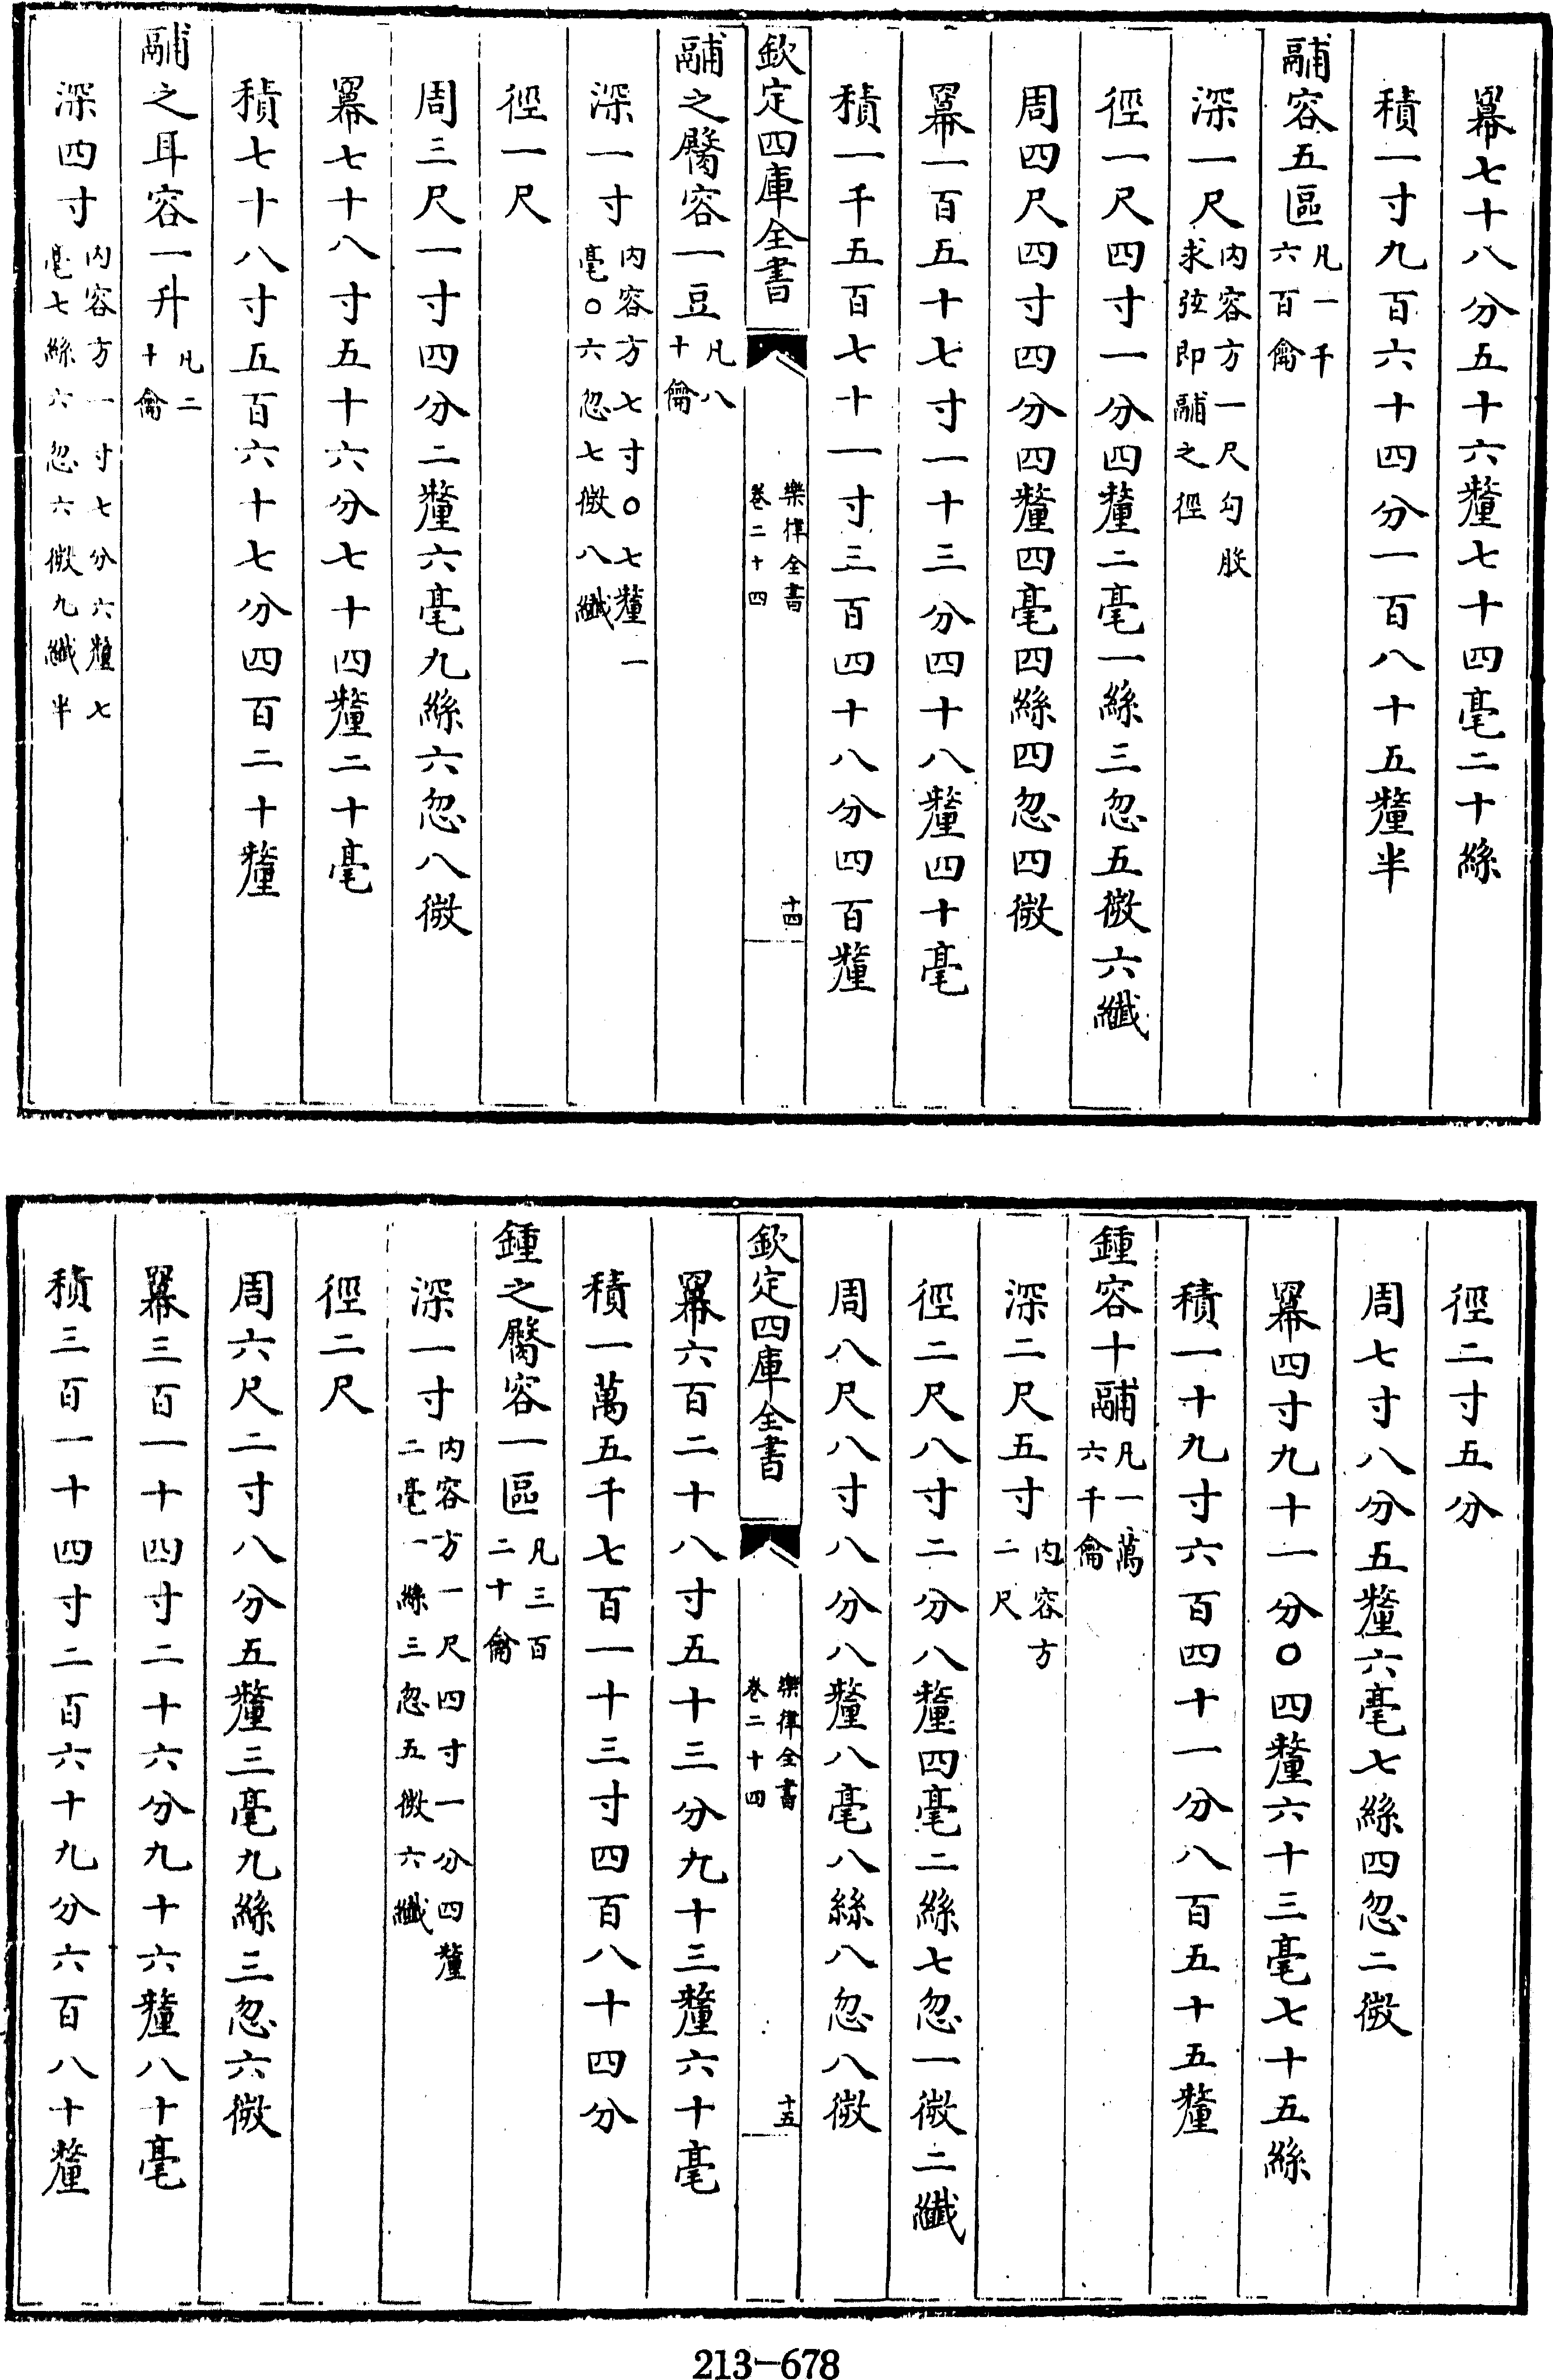 羃七十八分五十六釐七十四毫二十絲
積一寸九百六十四分一百八十五釐半
鬴容五區凡一千六百龠
深一尺內容方一尺勾股求弦即鬴之徑
徑一尺四寸一分四釐二毫一絲三忽五微六纖
周四尺四寸四分四釐四毫四絲四忽四微
羃一百五十七寸一十三分四十八釐四十毫
積一千五百七十一寸三百四十八分四百釐
欽定四庫全書
樂律全書
卷二十四
十四
鬴之臋容一豆凡八十龠
深一寸內容方七寸〇七釐一毫〇六忽七微八纖
徑一尺
周三尺一寸四分二釐六毫九絲六忽八微
羃七十八寸五十六分七十四釐二十毫
積七十八寸五百六十七分四百二十釐
鬴之耳容一升凡二十龠
深四寸內容方一寸七分六釐七毫七絲六忽六微九纖半
徑二寸五分
周七寸八分五釐六毫七絲四忽二微
羃四寸九十一分〇四釐六十三毫七十五絲
積一十九寸六百四十一分八百五十五釐
鍾容十鬴凡一萬六千龠
深二尺五寸內容方二尺
徑二尺八寸二分八釐四毫二絲七忽一微二纖
周八尺八寸八分八釐八毫八絲八忽八微
欽定四庫全書
樂律全書
卷二十四
十五
羃六百二十八寸五十三分九十三釐六十毫
積一萬五千七百一十三寸四百八十四分
鍾之臋容一區凡三百二十龠
深一寸內容方一尺四寸一分四釐二毫一絲三忽五微六纖
徑二尺
周六尺二寸八分五釐三毫九絲三忽六微
羃三百一十四寸二十六分九十六釐八十毫
積三百一十四寸二百六十九分六百八十釐
213-678